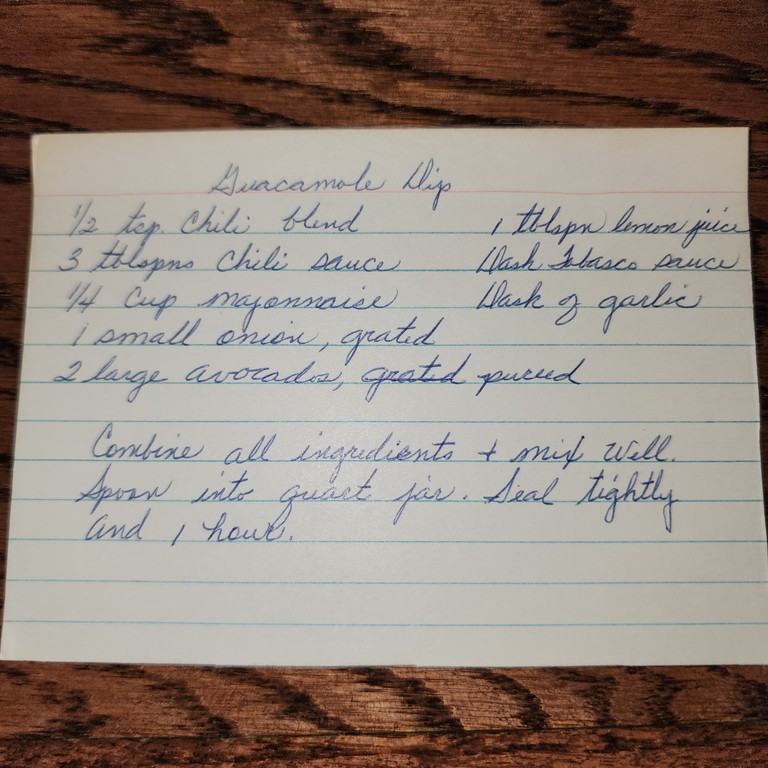 Guacamole Dip
1/2 tsp. Chili blend 1 tblspn lemon juice
3 tblspns Chili sauce Dash Tobasco sauce
1/4 Cup mayonnaise Dash of garlic
1 small onion, grated
2 large avocados, grated pureed
Combine all ingredients + mix well.
Spoon into quart jar. Seal tightly
and 1 hour.